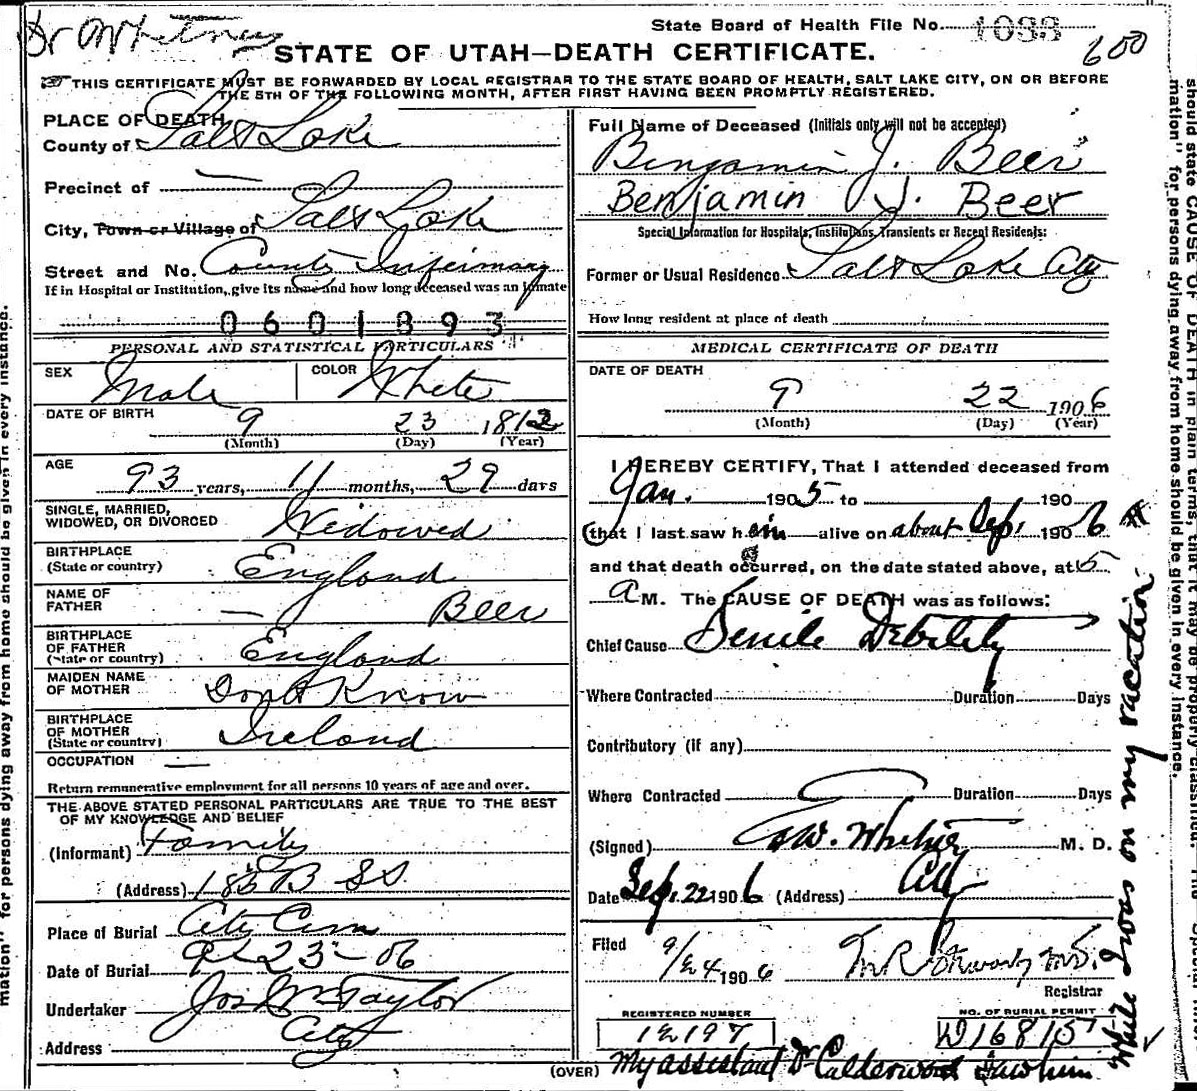 Dr Whitney
State Board of Health File No. 1083
600
STATE OF UTAH—DEATH CERTIFICATE.
THIS CERTIFICATE MUST BE FORWARDED BY LOCAL REGISTRAR TO THE STATE BOARD OF HEALTH, SALT LAKE CITY, ON OR BEFORE
THE 5TH OF THE FOLLOWING MONTH, AFTER FIRST HAVING BEEN PROMPTLY REGISTERED.
PLACE OF DEATH
County of Salt Lake
Precinct of —
City, Town or Village of Salt Lake
Street and No. County Infirmary
If in Hospital or Institution, give its name and how long deceased was an inmate
0601893
PERSONAL AND STATISTICAL PARTICULARS
SEX Male COLOR White
DATE OF BIRTH 9 23 1812
(Month) (Day) (Year)
AGE 93 years, 11 months, 29 days
SINGLE, MARRIED,
WIDOWED, OR DIVORCED Widowed
BIRTHPLACE
(State or country) England
NAME OF
FATHER — Beer
BIRTHPLACE
OF FATHER
(State or country) England
MAIDEN NAME
OF MOTHER Dont Know
BIRTHPLACE
OF MOTHER
(State or country) Ireland
OCCUPATION —
Return remunerative employment for all persons 10 years of age and over.
THE ABOVE STATED PERSONAL PARTICULARS ARE TRUE TO THE BEST
OF MY KNOWLEDGE AND BELIEF
(Informant) Family
(Address) 185 B St
Place of Burial City Cem
Date of Burial 9-23-06
Undertaker Jos Wm Taylor
Address City
Full Name of Deceased (Initials only will not be accepted)
Bengamin J. Beer
Benjamin J. Beer
Special Information for Hospitals, Institutions, Transients or Recent Residents:
Former or Usual Residence Salt Lake City
How long resident at place of death
MEDICAL CERTIFICATE OF DEATH
DATE OF DEATH
9 22 1906
(Month) (Day) (Year)
I HEREBY CERTIFY, That I attended deceased from
Jan. 1905 to 190
(that I last saw him alive on about Sep. 1906
and that death occurred, on the date stated above, at 5
a M. The CAUSE OF DEATH was as follows:
Chief Cause Senile Debility
Where Contracted Duration Days
Contributory (if any)
Where Contracted Duration Days
(Signed) W. Whitney M. D.
Date Sep. 22 1906 (Address) City
Filed 9/24 1906 M.D.
Registrar
REGISTERED NUMBER NO. OF BURIAL PERMIT
12197 D16815
(OVER) My assistant Dr Calderwood saw him
While I was on my vacation.
should state CAUSE OF DEATH in plain terms, that it may be properly classified. The "Special Infor-
mation" for persons dying away from home should be given in every instance.
mation" for persons dying away from home should be given in every instance.